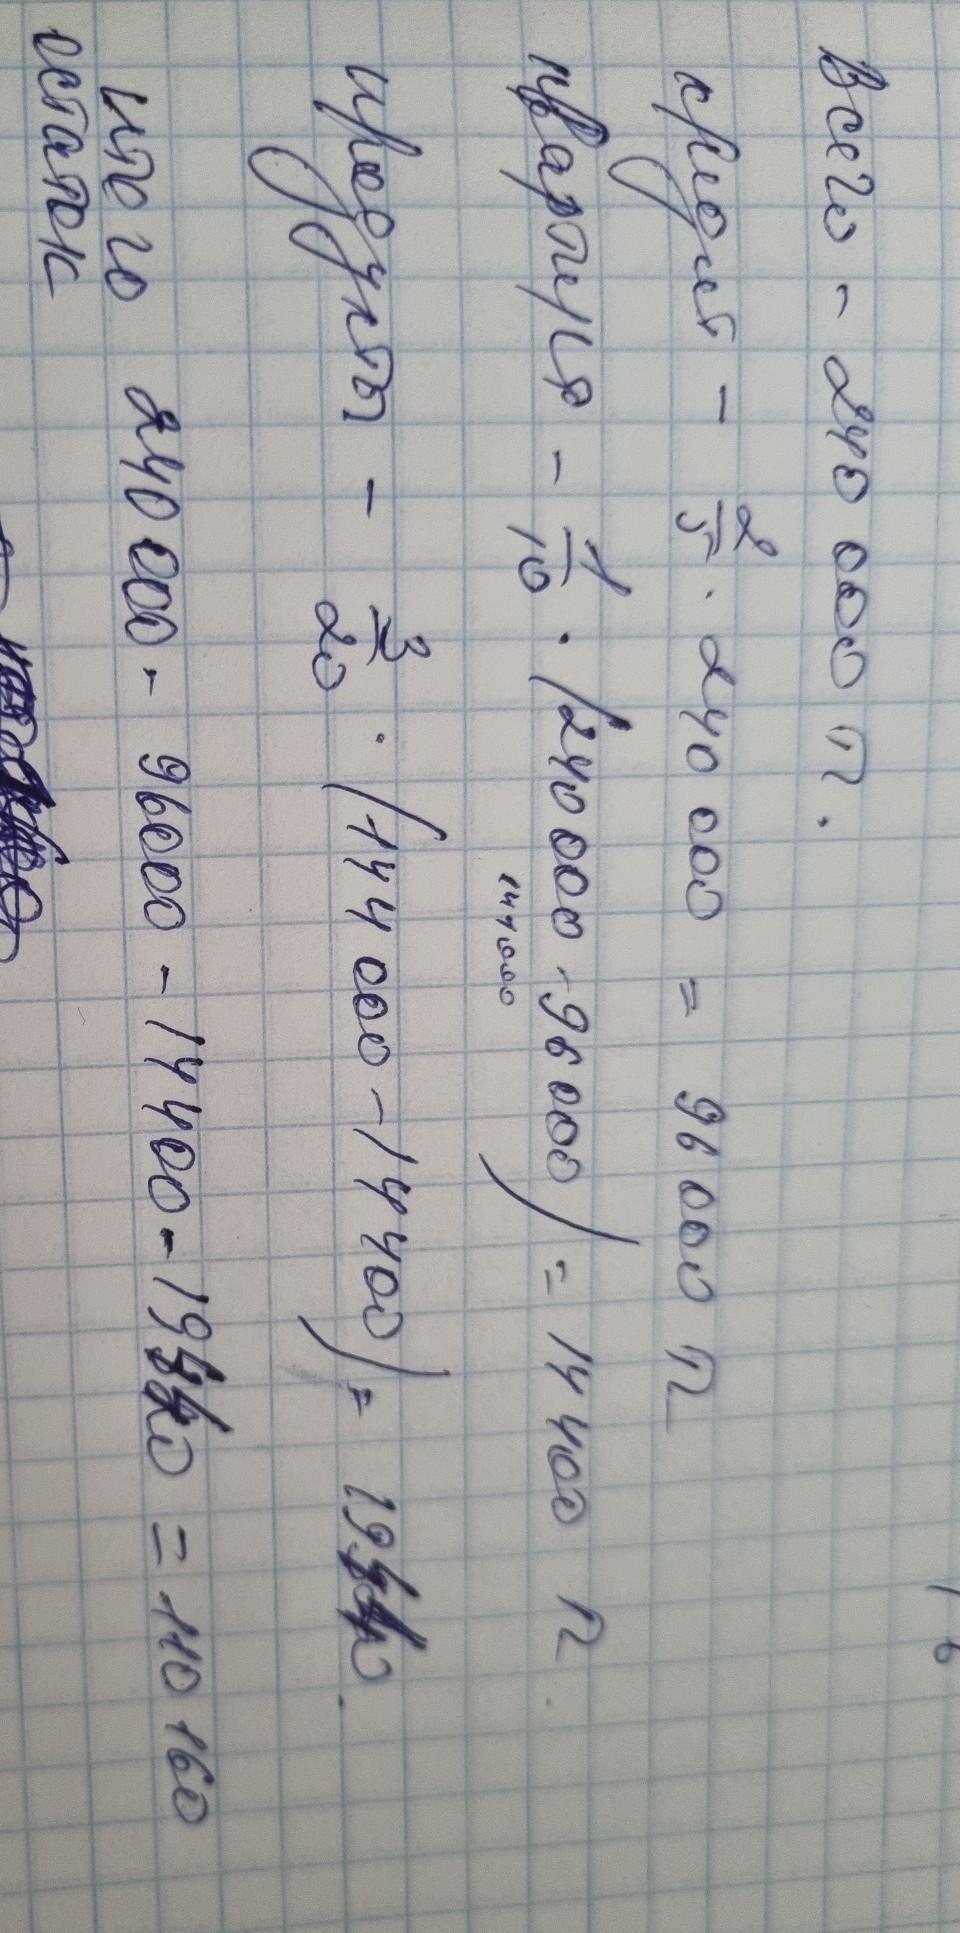 Всего - 240 000 т.
кредит - 2/5 · 240 000 = 96 000 т
квартира - 1/10 · (240 000 - 96 000) = 14 400 т.
144000
продукты - 3/20 · (144 000 - 14 400) = 19440.
итого 240 000 - 96000 - 14400 - 19440 = 110 160
остаток